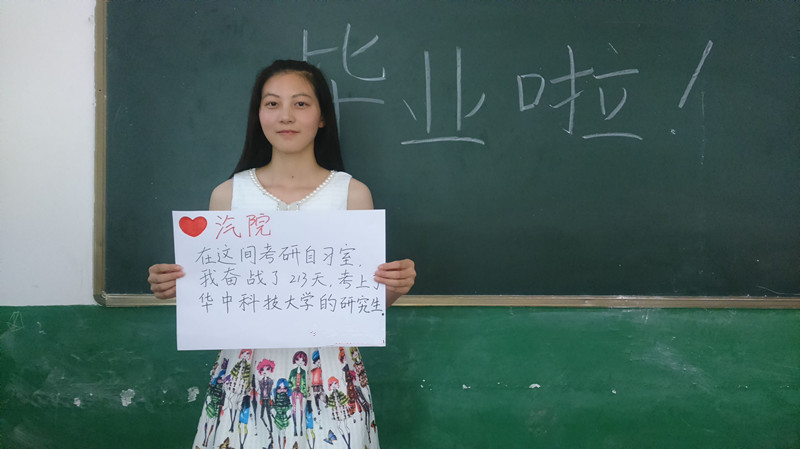 毕业啦!
汽院
在这间考研自习室,
我奋战了213天,考上了
华中科技大学的研究生.